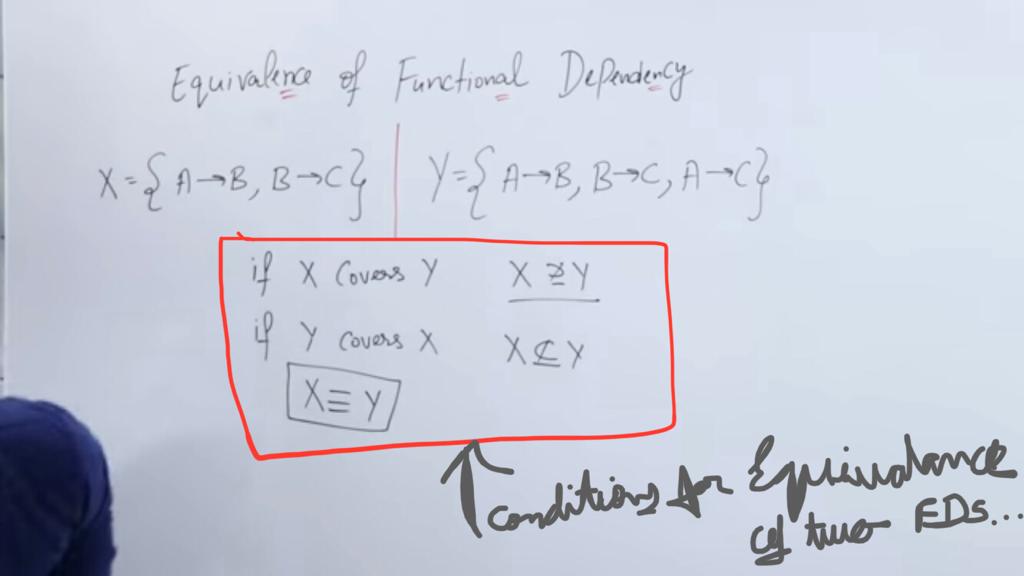 Equivalence of Functional Dependency
X={A→B, B→C} Y={A→B, B→C, A→C}
if X Covers Y X ⊇ Y
if Y covers X X ⊆ Y
X≡Y
conditions for Equivalance
of two FDs...